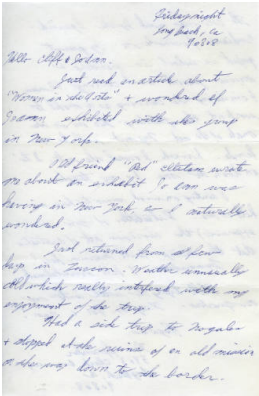 Friday night
Long Beach, Ca
90808
Hello Cliff & 
Just read an article about
"Women in the Arts" & wondered if
exhibited with the group
in New York.
Old friend "Red" wrote
me about an exhibit was
having in New York, & I naturally
wondered.
Just returned from a few
days in Tucson. Weather unusually
cold which really interfered with my
enjoyment of the trip.
Had a side trip to Nogales
& stopped at the ruins of an old mission
on the way down to the border.